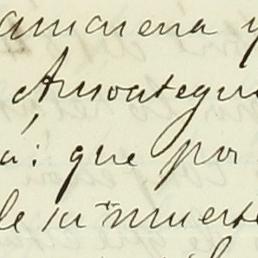 amarena y
Amostegui
a: que por
de su muerte